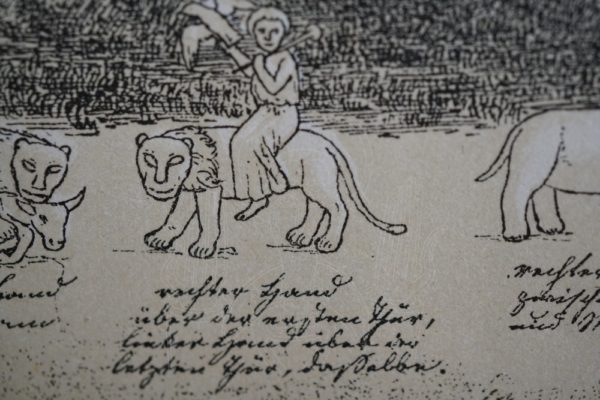 Hand
rechter Hand
über der ersten Thür,
linker Hand über der
letzten Thür, dasselbe.
rechter
zwisch
und St